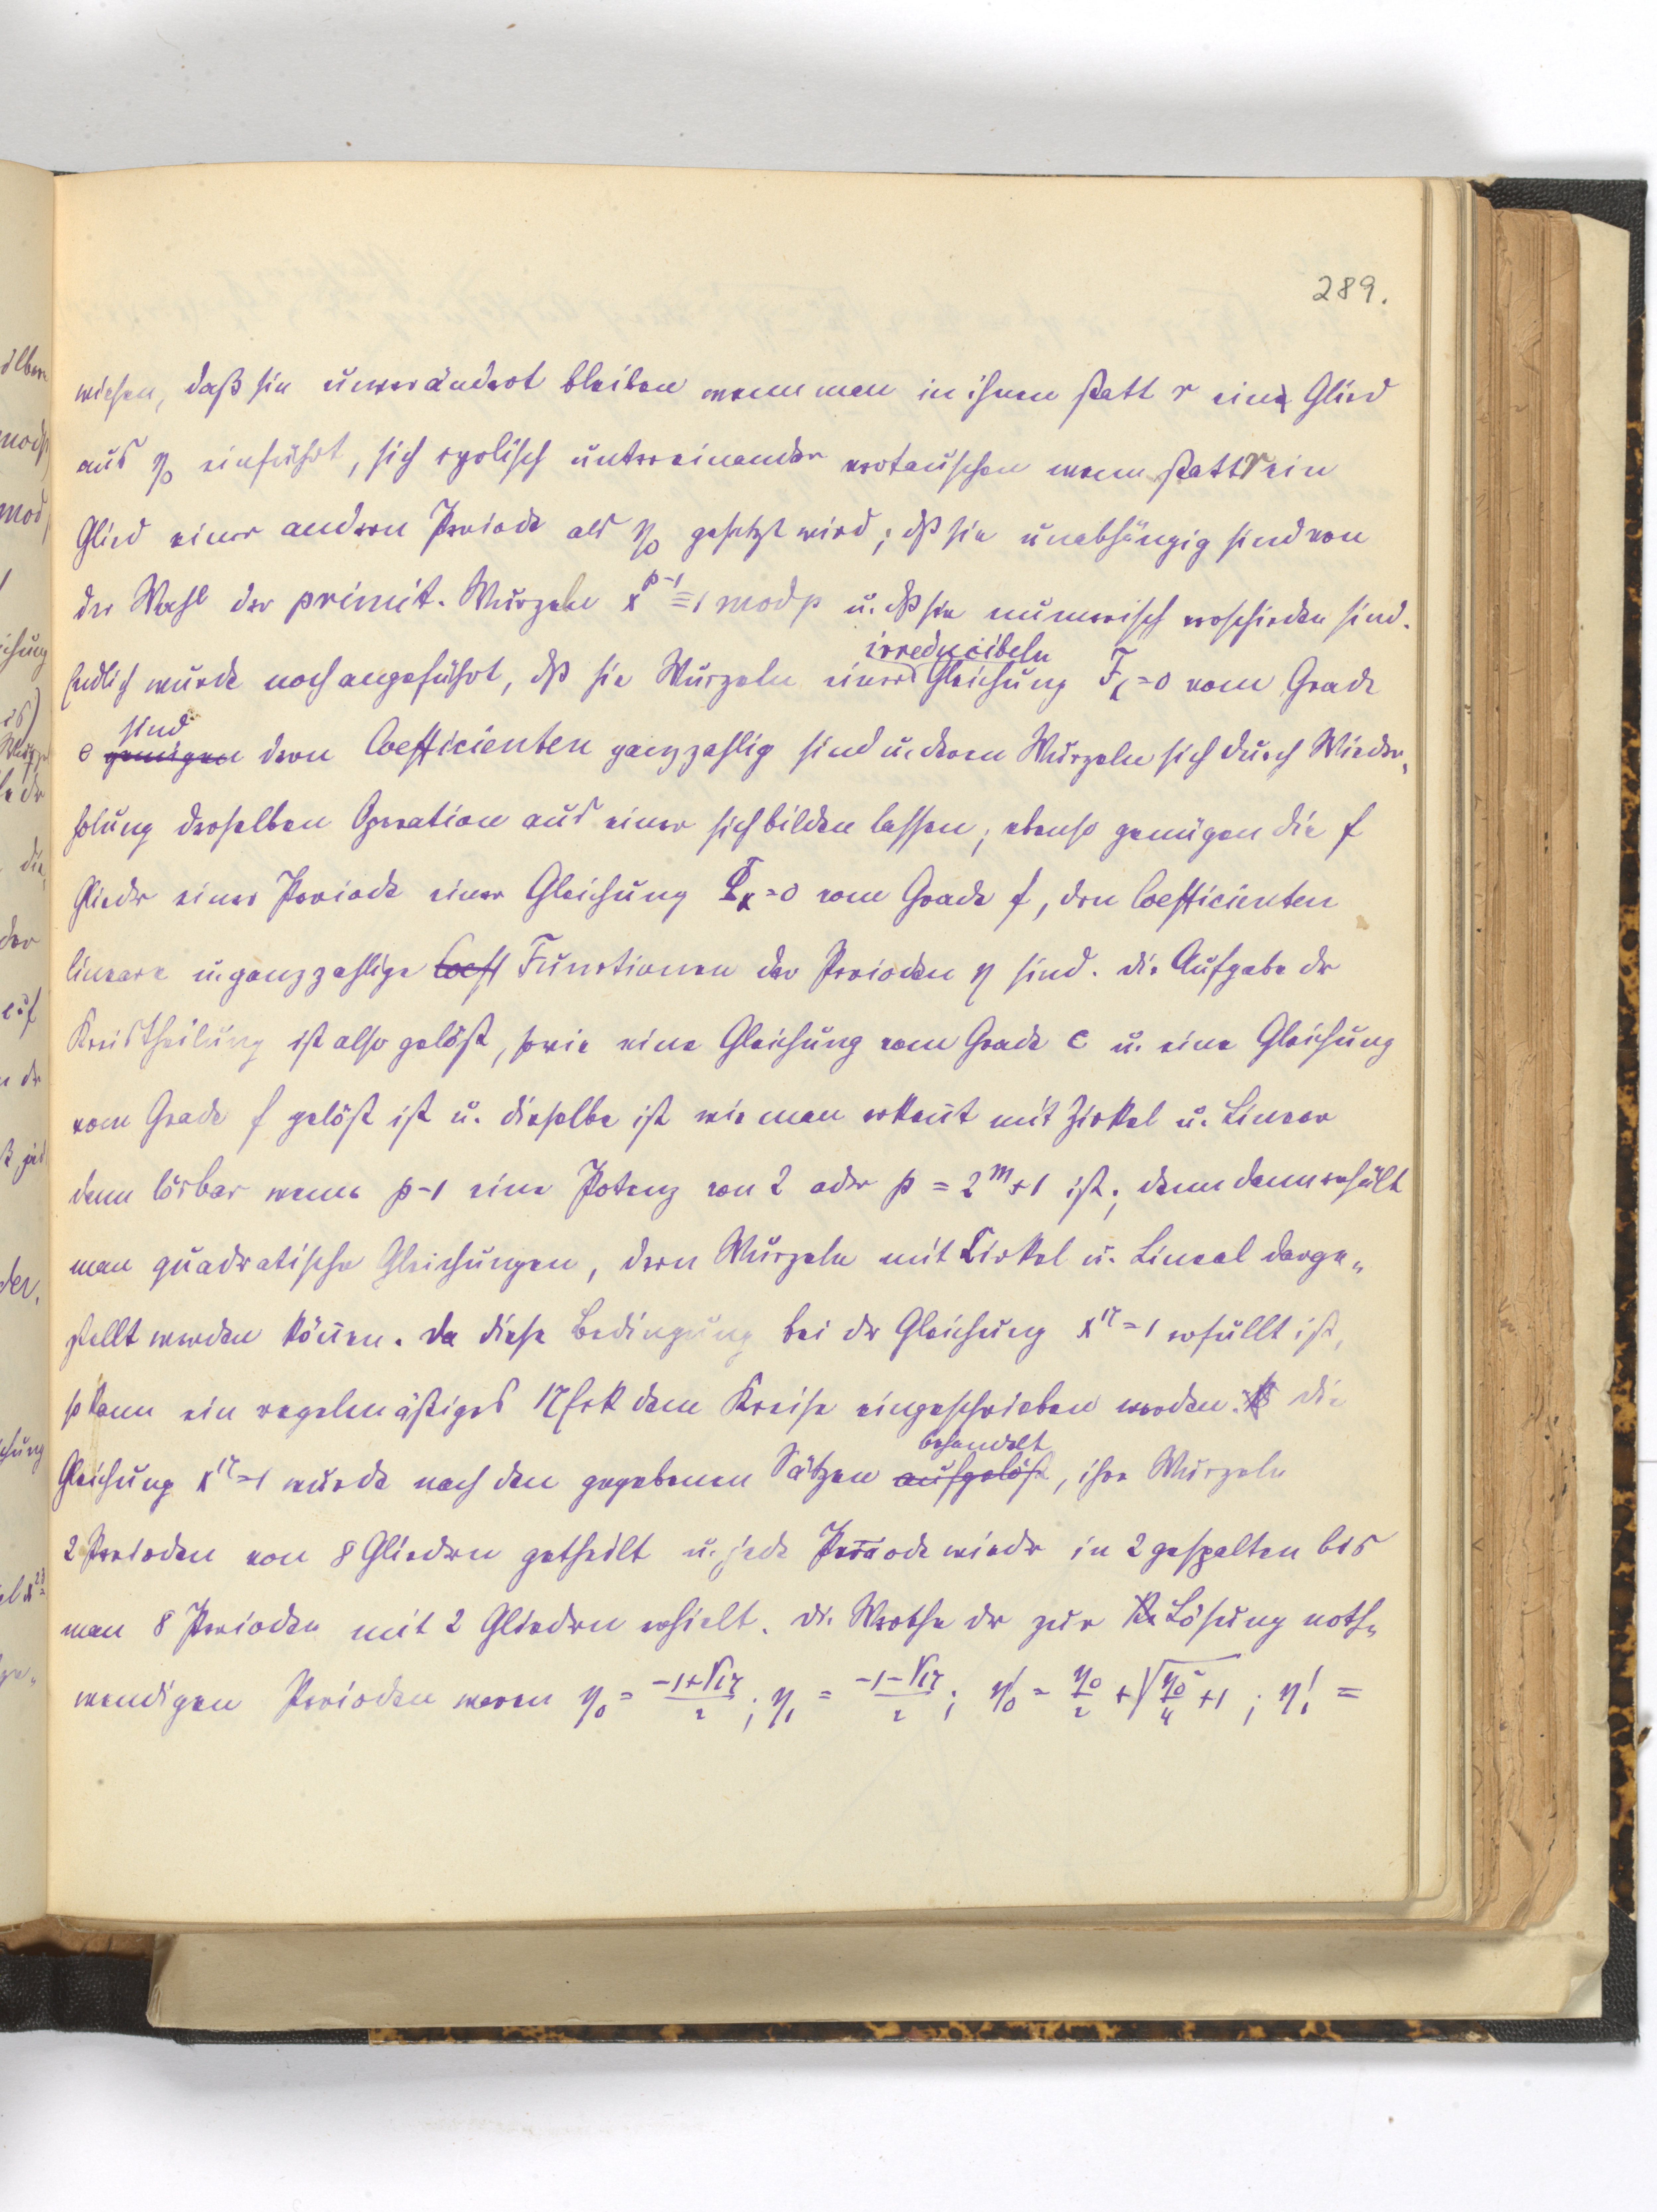 289.
wiesen, daß sie unverändert bleiben wenn man in ihnen statt r ein Glied
aus η₀ einführt, sich cyclisch untereinander vertauschen wenn statt r ein
Glied einer andern Periode als η₀ gesetzt wird; dß sie unabhängig sind von
der Wahl der primit. Wurzeln x^{p-1} ≡ 1 mod p u. dß sie numerisch verschieden sind.
Endlich wurde noch angeführt, dß sie Wurzeln einer irreducibeln Gleichung F_x = 0 vom Grade
e sind genügen dern Coefficienten ganzzahlig sind u. deren Wurzeln sich durch Wieder-
holung derselben Operation aus einer sich bilden lassen; ebenso genügen die f
Glieder einer Periode einer Gleichung Φ_x = 0 vom Grade f, dern Coefficienten
lineare u. ganzzahlige Coeff Functionen der Perioden η sind. Die Aufgabe dr
Kreistheilung ist also gelöst, sowie eine Gleichung vom Grade e u. eine Gleichung
vom Grade f gelöst ist u. dieselbe ist wie man erkeñt mit Zirkel u. Linear
dann lösbar wenn p-1 eine Potenz von 2 oder p = 2^m+1 ist; denn dann erhält
man quadratische Gleichungen, dern Wurzeln mit Cirkel u. Lineal darge-
stellt werden köñen. Da diese Bedingung bei dr Gleichung x^{17} = 1 erfüllt ist,
so kann ein regelmäßiges 17Eck dem Kreise eingeschrieben werden. Die
Gleichung x^{17} = 1 wurde nach den gegebenen Sätzen aufgelöst behandelt, ihre Wurzeln
2 Perioden von 8 Gliedern getheilt u. jede Periode wieder in 2 gespalten bis
man 8 Perioden mit 2 Gliedern erhielt. Die Werthe dr zur Lösung noth-
wendigen Perioden waren η₀ = (-1+√17)/2 ; η₁ = (-1-√17)/2 ; η₀' = η₀/2 + √(η₀²/4 + 1) ; η₁' =